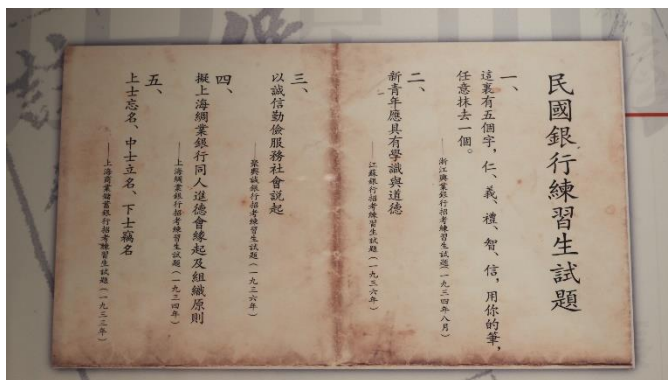 民國銀行練習生試題
一、
這裏有五個字，仁、義、禮、智、信，用你的筆，
任意抹去一個。
——浙江興業銀行招考練習生試題（一九三四年八月）
二、
新青年應具有學識與道德
——江蘇銀行招考練習生試題（一九三六年）
三、
以誠信勤儉服務社會說起
——聚興誠銀行招考練習生試題（一九三六年）
四、
擬上海綢業銀行同人進德會緣起及組織原則
——上海綢業銀行招考練習生試題（一九三四年）
五、
上士忘名、中士立名、下士竊名
——上海商業儲蓄銀行招考練習生試題（一九三三年）